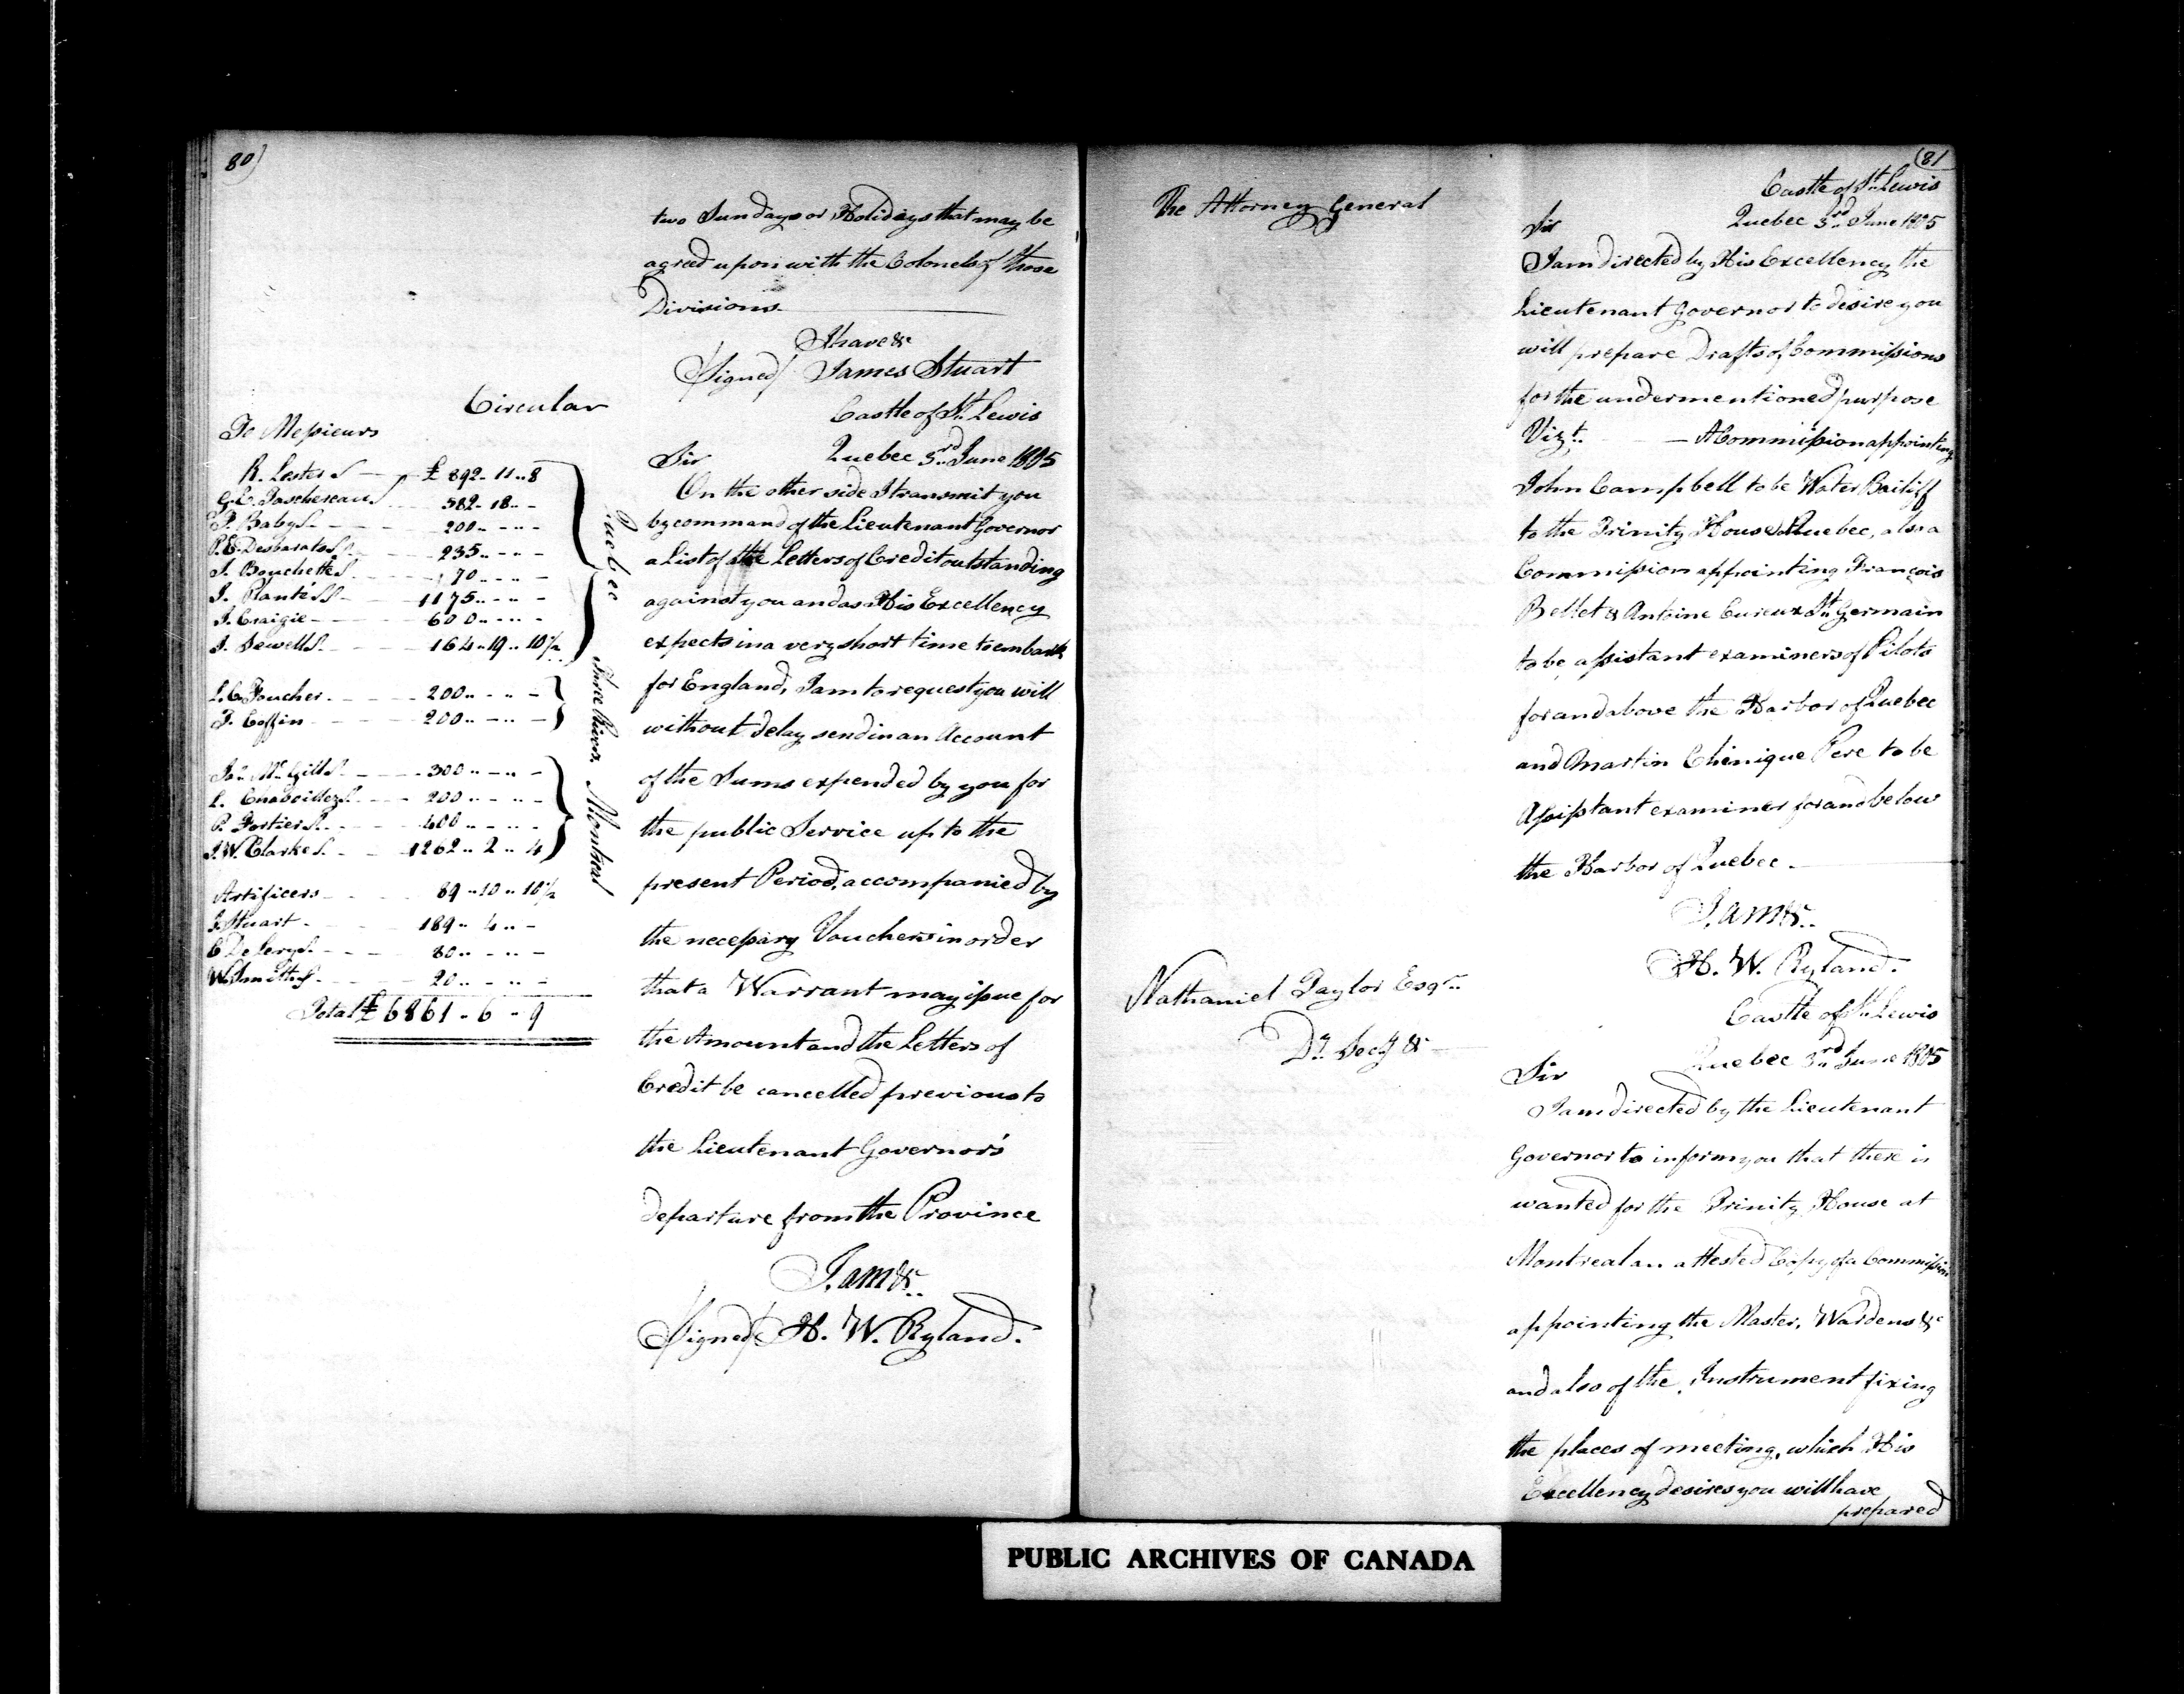 80)
two Sundays or Holidays that may be
agreed upon with the Colonels of those
Divisions.
I have &c
(Signed) James Stuart
Circular
To Messieurs
R. Lester £ 892 - 11 - 8
G. L. Taschereau 582 - 18 - -
F. Baby 200 - - -
P. E. Desbarats 235 - - -
J. Bouchette 170 - - -
J. Planté 1175 - - -
J. Craigie 600 - - -
J. Sewell 164 - 19 - 10½
Quebec
L. C. Foucher 200 - - -
T. Coffin 200 - - -
Three Rivers
Jas. McGill 300 - - -
L. Chaboillez 200 - - -
P. Fortier 400 - - -
J. W. Clarke 1262 - 2 - 4
Montreal
Artificers 89 - 10 - 10½
J. Stuart 189 - 4 - -
C De Lery 80 - - -
W. Smith 20 - - -
Total £ 6861 - 6 - 9
Castle of St. Lewis
Sir Quebec 3rd June 1805
On the other side I transmit you
by command of the Lieutenant Governor
a List of the Letters of Credit outstanding
against you and as His Excellency
expects in a very short time to embark
for England, I am to request you will
without delay send in an Account
of the Sums expended by you for
the public Service up to the
present Period, accompanied by
the necessary Vouchers in order
that a Warrant may issue for
the Amount and the Letters of
Credit be cancelled previous to
the Lieutenant Governor's
departure from the Province
I am &c.
(Signed) H. W. Ryland.
(81
The Attorney General
Castle of St. Lewis
Sir Quebec 3rd June 1805
I am directed by His Excellency the
Lieutenant Governor to desire you
will prepare Drafts of Commissions
for the undermentioned purpose
Vizt. — A Commission appointing
John Campbell to be Water Bailiff
to the Trinity House Quebec, also a
Commission appointing François
Bellet & Antoine Cureux St. Germain
to be assistant examiners of Pilots
for and above the Harbor of Quebec
and Martin Chinique Pere to be
Assistant examiner for and below
the Harbor of Quebec.
I am &c.
H. W. Ryland.
Nathaniel Taylor Esqr.
Dy. Secy &c
Castle of St. Lewis
Sir Quebec 3rd June 1805
I am directed by the Lieutenant
Governor to inform you that there is
wanted for the Trinity House at
Montreal an attested Copy of a Commission
appointing the Master, Wardens &c
and also of the Instrument fixing
the places of meeting, which His
Excellency desires you will have
prepared
PUBLIC ARCHIVES OF CANADA